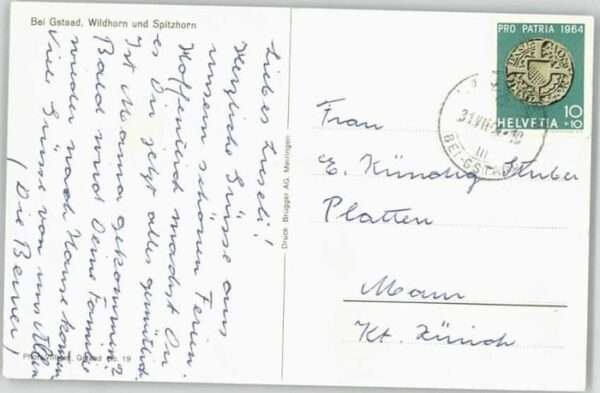 Bei Gstaad, Wildhorn und Spitzhorn
Liebes Lieseli!
Herzliche Grüsse aus
unsern schönen Ferien.
Hoffentlich machst Du
es Dir jetzt alles gemütlich.
Ist Mama gekommen?
Bald wird Deine Familie
wieder nach Hause kommen
Viele Grüsse von uns Allen
Die Berner
Gstaad No. 19
Druck: Brügger AG, Meiringen
PRO PATRIA 1964
10
+10
HELVETIA
31.VII
BEI GSTAAD
Frau
E. Kündig Stuber
Platten
Maur
Kt. Zürich